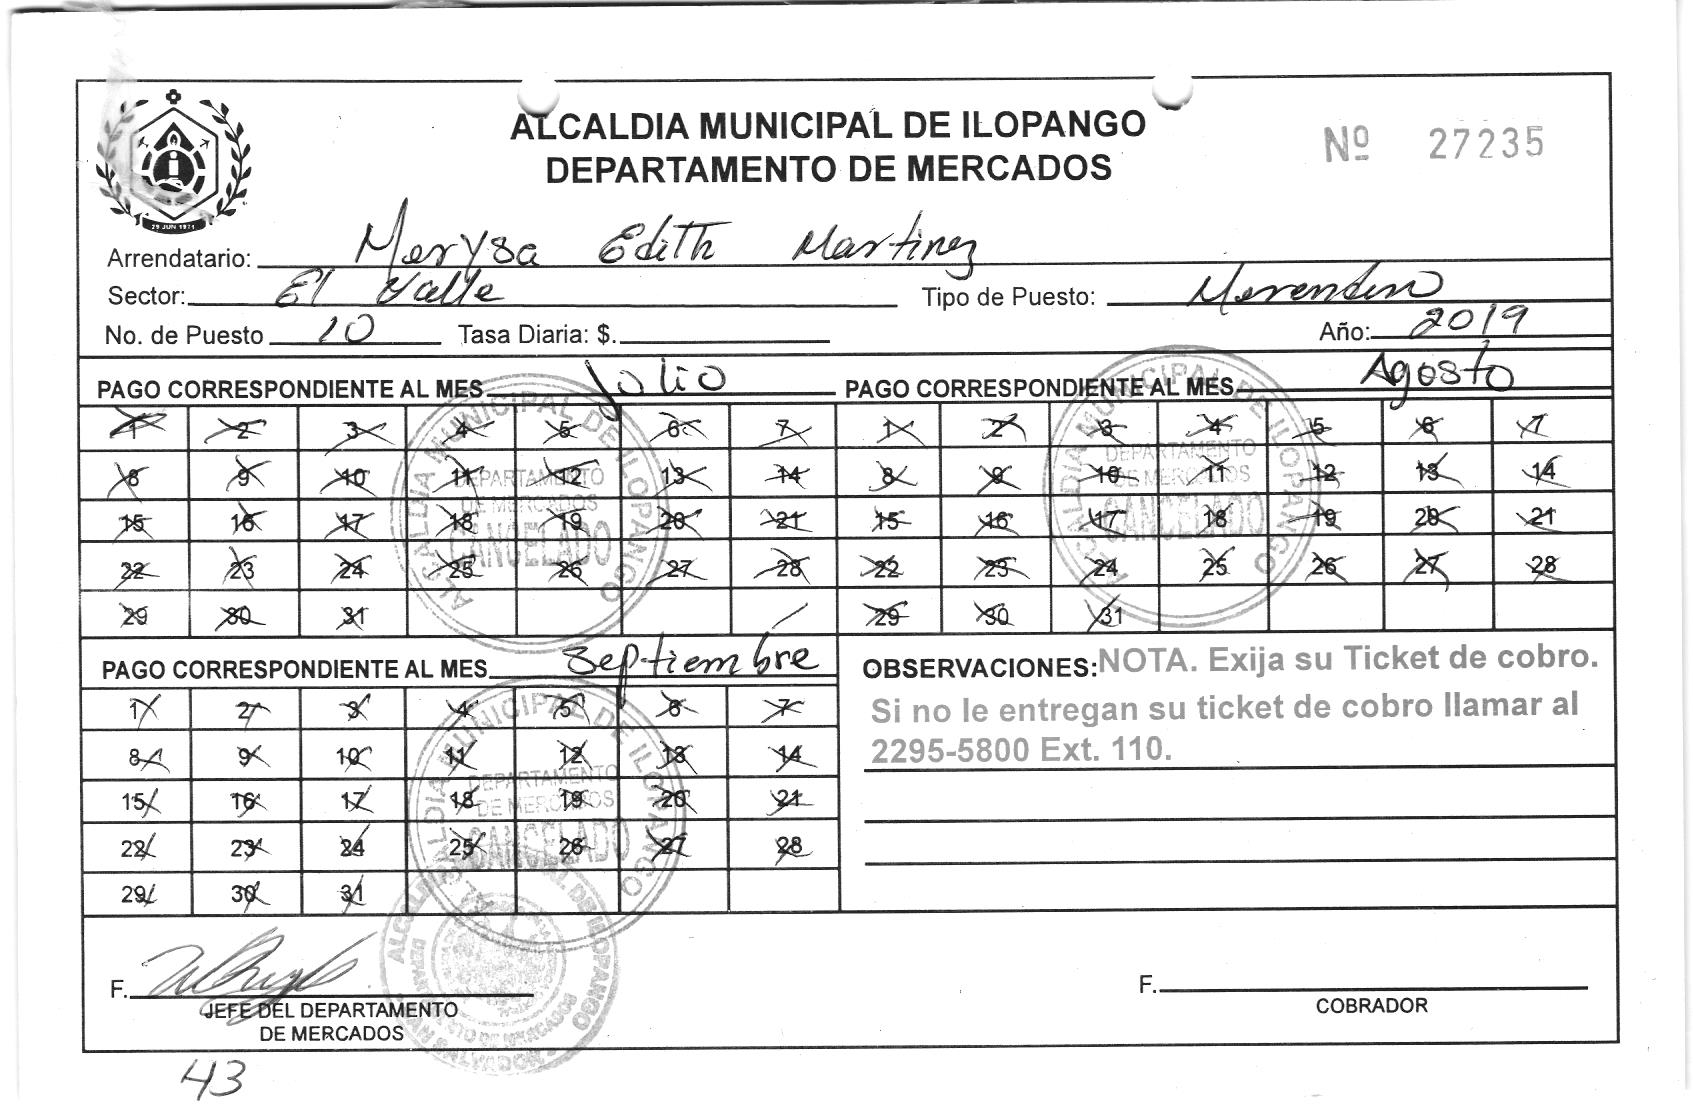 ALCALDIA MUNICIPAL DE ILOPANGO
DEPARTAMENTO DE MERCADOS
Nº 27235
29 JUN 1971
Arrendatario: Merysa Edith Martinez
Sector: El Valle Tipo de Puesto: Merendero
No. de Puesto 10 Tasa Diaria: $. Año: 2019
PAGO CORRESPONDIENTE AL MES Julio
1 2 3 4 5 6 7
8 9 10 11 12 13 14
15 16 17 18 19 20 21
22 23 24 25 26 27 28
29 30 31
ALCALDIA MUNICIPAL DE ILOPANGO
DEPARTAMENTO
DE MERCADOS
CANCELADO
PAGO CORRESPONDIENTE AL MES Agosto
1 2 3 4 5 6 7
8 9 10 11 12 13 14
15 16 17 18 19 20 21
22 23 24 25 26 27 28
29 30 31
ALCALDIA MUNICIPAL DE ILOPANGO
DEPARTAMENTO
DE MERCADOS
CANCELADO
PAGO CORRESPONDIENTE AL MES Septiembre
1 2 3 4 5 6 7
8 9 10 11 12 13 14
15 16 17 18 19 20 21
22 23 24 25 26 27 28
29 30 31
ALCALDIA MUNICIPAL DE ILOPANGO
DEPARTAMENTO
DE MERCADOS
CANCELADO
OBSERVACIONES: NOTA. Exija su Ticket de cobro.
Si no le entregan su ticket de cobro llamar al
2295-5800 Ext. 110.
F.
JEFE DEL DEPARTAMENTO
DE MERCADOS
F.
COBRADOR
43